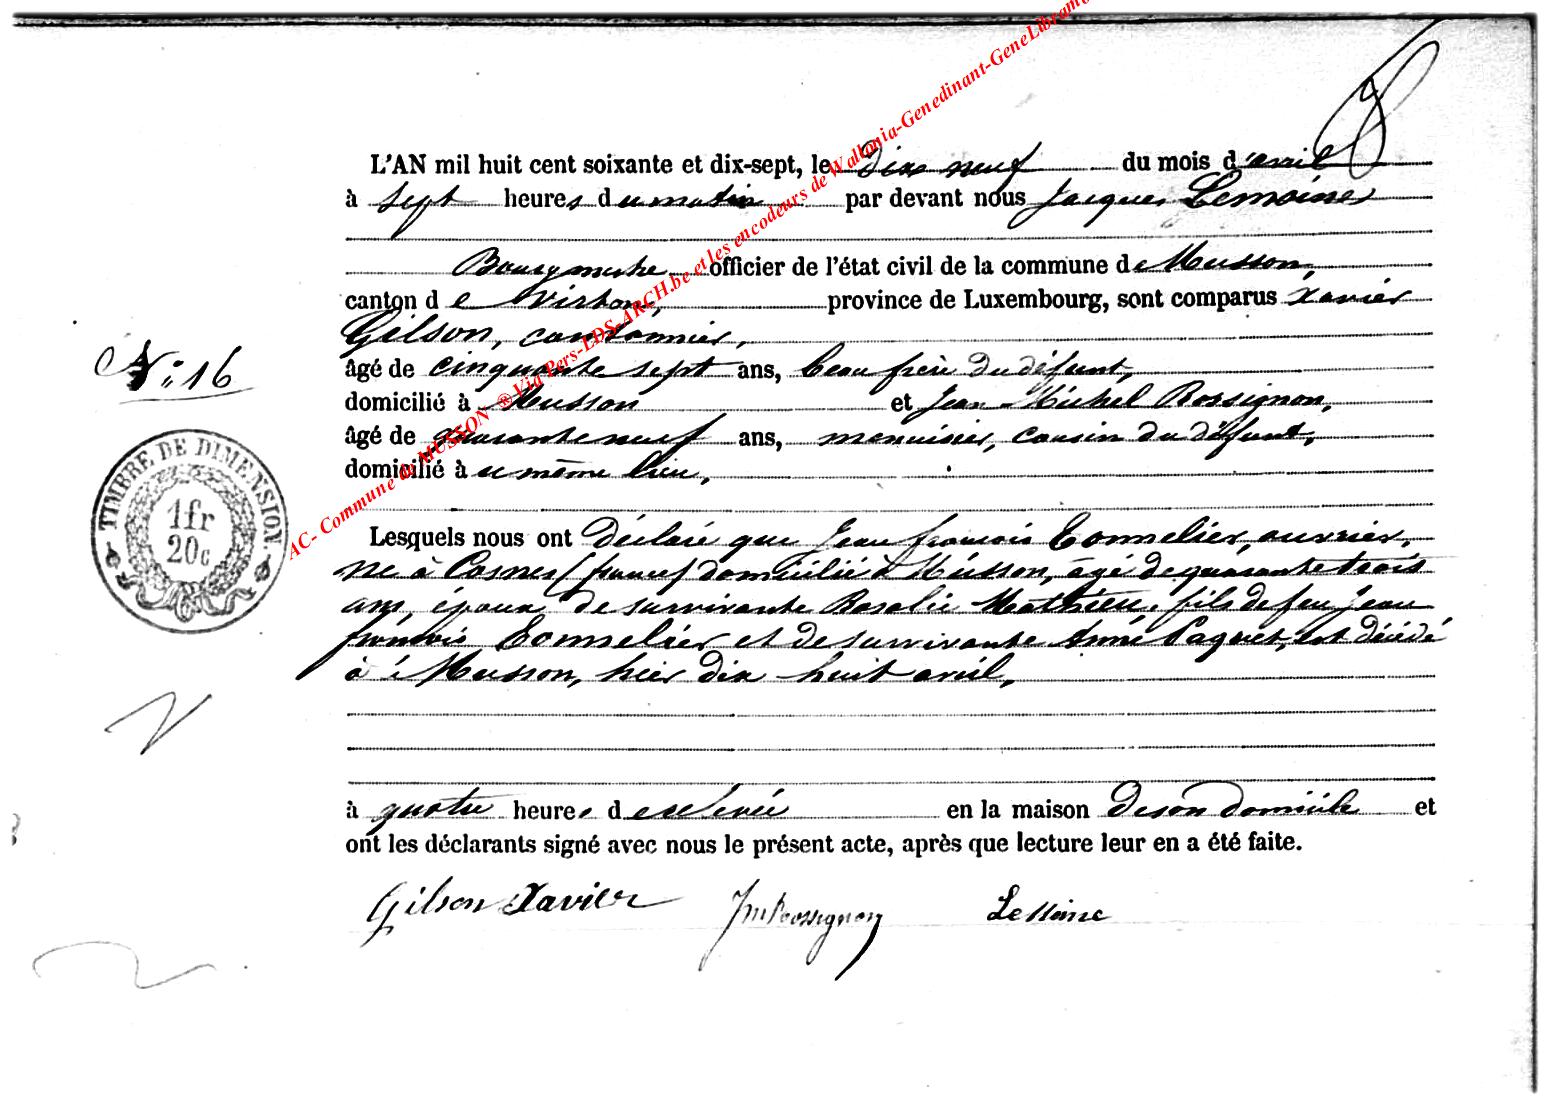 L'AN mil huit cent soixante et dix-sept, le dix neuf du mois d'avril
à sept heures du matin par devant nous Jacques Lemoine
Bourgmestre officier de l'état civil de la commune de Musson,
canton de Virton, province de Luxembourg, sont comparus Xavier
Gilson, cantonnier,
N° 16
âgé de cinquante sept ans, beau frère du défunt,
domicilié à Musson et Jean Michel Rossignon,
âgé de quarante neuf ans, menuisier, cousin du défunt,
domicilié au même lieu,
TIMBRE DE DIMENSION
1fr
20c
Lesquels nous ont déclaré que Jean françois Tonnelier, ouvrier,
né à Cosnes (france) domicilié à Musson, âgé de quarante trois
ans, époux de survivante Rosalie Mathieu, fils de feu Jean
françois Tonnelier et de survivante Anne Paquet, est décédé
à Musson, hier dix huit avril,
à quatre heures de relevée en la maison de son domicile et
ont les déclarants signé avec nous le présent acte, après que lecture leur en a été faite.
Gilson Xavier JMRossignon Lemoine
AC- Commune de MUSSON ® Via Pers-LDS-ARCH.be et les encodeurs de Wallonia-Genedinant-GeneLibramo